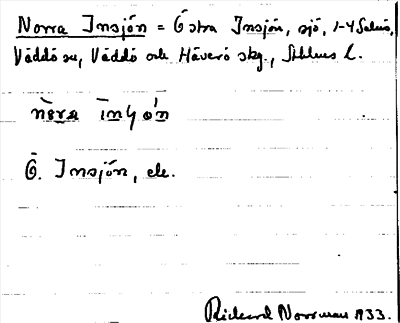 Norra Insjön = Östra Insjön, sjö, 1-4 Salnö,
Väddö sn, Väddö och Häverö skg., Sthlms l.
Ö. Insjön, ele.
Rickard Norrman 1933.